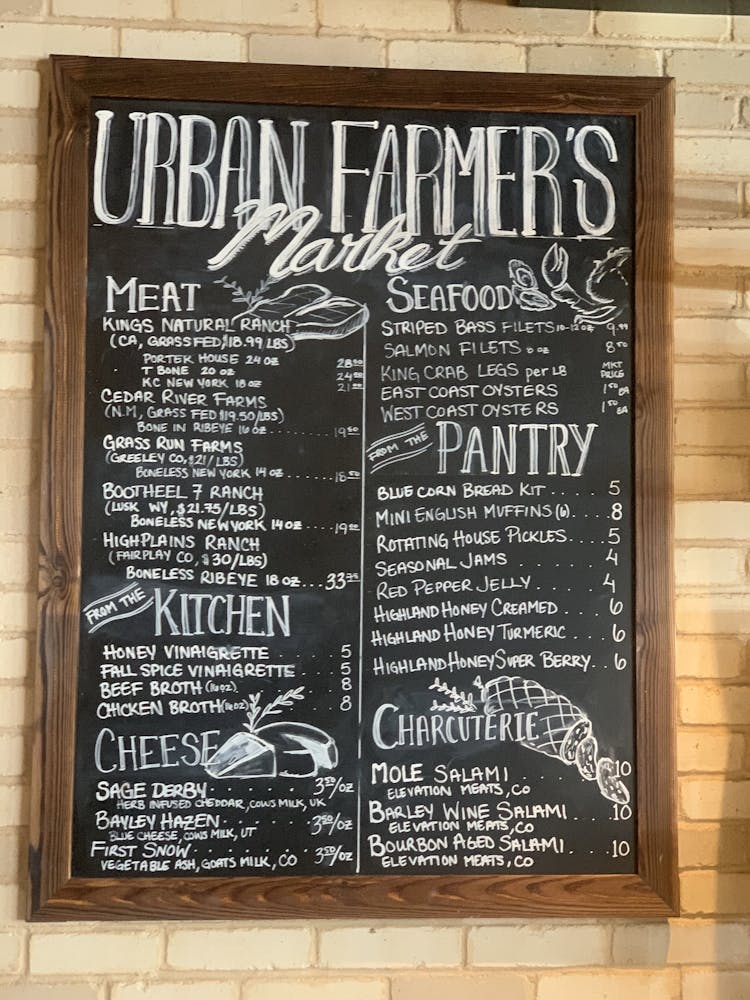 URBAN FARMER'S
Market
MEAT
KINGS NATURAL RANCH
(CA, GRASSFED, $18.99 LBS)
PORTEK HOUSE 24 OZ 28.50
T BONE 20 OZ 24.00
KC NEW YORK 18 OZ 21.00
CEDAR RIVER FARMS
(N.M, GRASS FED $19.50/LBS)
BONE IN RIBEYE 16 OZ......... 19.50
GRASS RUN FARMS
(GREELEY CO, $21/LBS)
BONELESS NEW YORK 14 OZ......... 18.50
BOOTHEEL 7 RANCH
(LUSK WY, $21.75/LBS)
BONELESS NEW YORK 14 OZ.... 19.00
HIGH PLAINS RANCH
(FAIRPLAY CO, $30/LBS)
BONELESS RIBEYE 18 OZ... 33.75
FROM THE KITCHEN
HONEY VINAIGRETTE..... 5
FALL SPICE VINAIGRETTE.... 5
BEEF BROTH (16OZ)........ 8
CHICKEN BROTH (16OZ)...... 8
CHEESE
SAGE DERBY......... 3.50/OZ
HERB INFUSED CHEDDAR, COWS MILK, UK
BAYLEY HAZEN....... 3.50/OZ
BLUE CHEESE, COWS MILK, VT
FIRST SNOW......... 3.50/OZ
VEGETABLE ASH, GOATS MILK, CO
SEAFOOD
STRIPED BASS FILETS 10-12 OZ 9.99
SALMON FILETS 8 OZ 8.50
KING CRAB LEGS per LB MKT PRICE
EAST COAST OYSTERS 1.50 EA
WEST COAST OYSTERS 1.50 EA
FROM THE PANTRY
BLUE CORN BREAD KIT.... 5
MINI ENGLISH MUFFINS (6).. 8
ROTATING HOUSE PICKLES.... 5
SEASONAL JAMS....... 4
RED PEPPER JELLY..... 4
HIGHLAND HONEY CREAMED.... 6
HIGHLAND HONEY TURMERIC... 6
HIGHLAND HONEY SUPER BERRY.. 6
CHARCUTERIE
MOLE SALAMI....... 10
ELEVATION MEATS, CO
BARLEY WINE SALAMI... 10
ELEVATION MEATS, CO
BOURBON AGED SALAMI.... 10
ELEVATION MEATS, CO